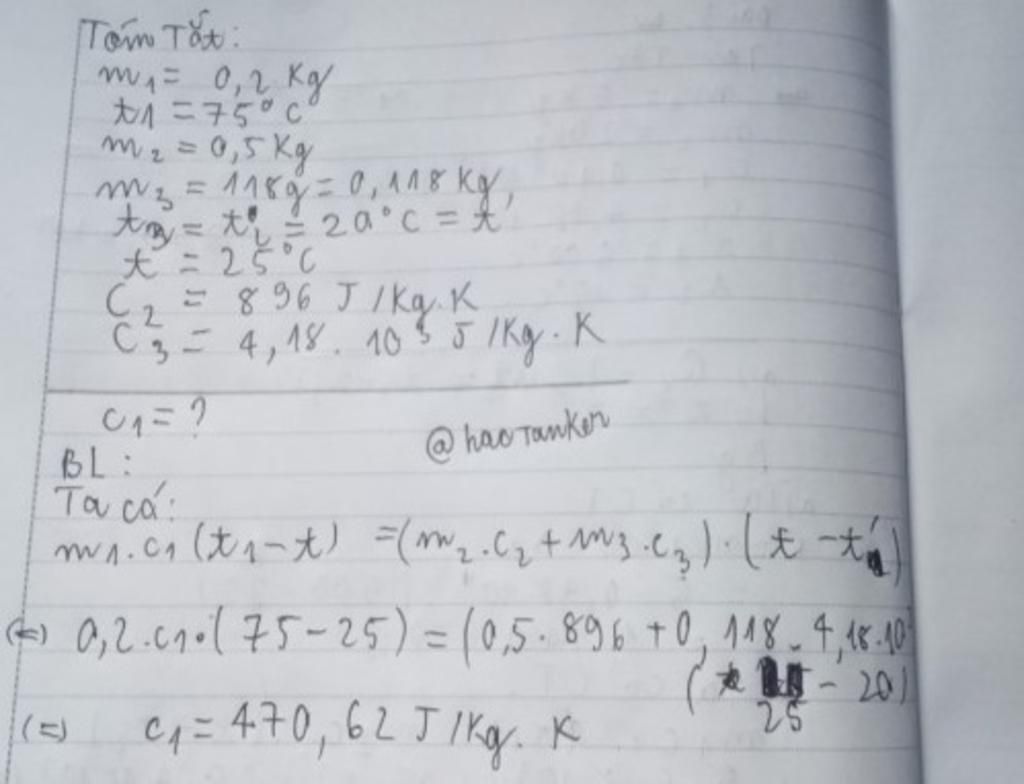 Tóm Tắt:
m₁ = 0,2 Kg
t1 = 75°C
m₂ = 0,5 Kg
m₃ = 118g = 0,118 Kg,
t₃ = t'₂ = 20°C = t'
t = 25°C
C₂ = 896 J/Kg.K
C₃ = 4,18. 10³ J/Kg.K
c₁ = ?
@haoTanker
BL:
Ta có:
m₁.c₁(t₁-t) = (m₂.c₂+m₃.c₃).(t-t')
(=) 0,2.c₁.(75-25) = (0,5.896+0,118.4,18.10³
(25 - 20)
(=) c₁ = 470,62 J/Kg.K